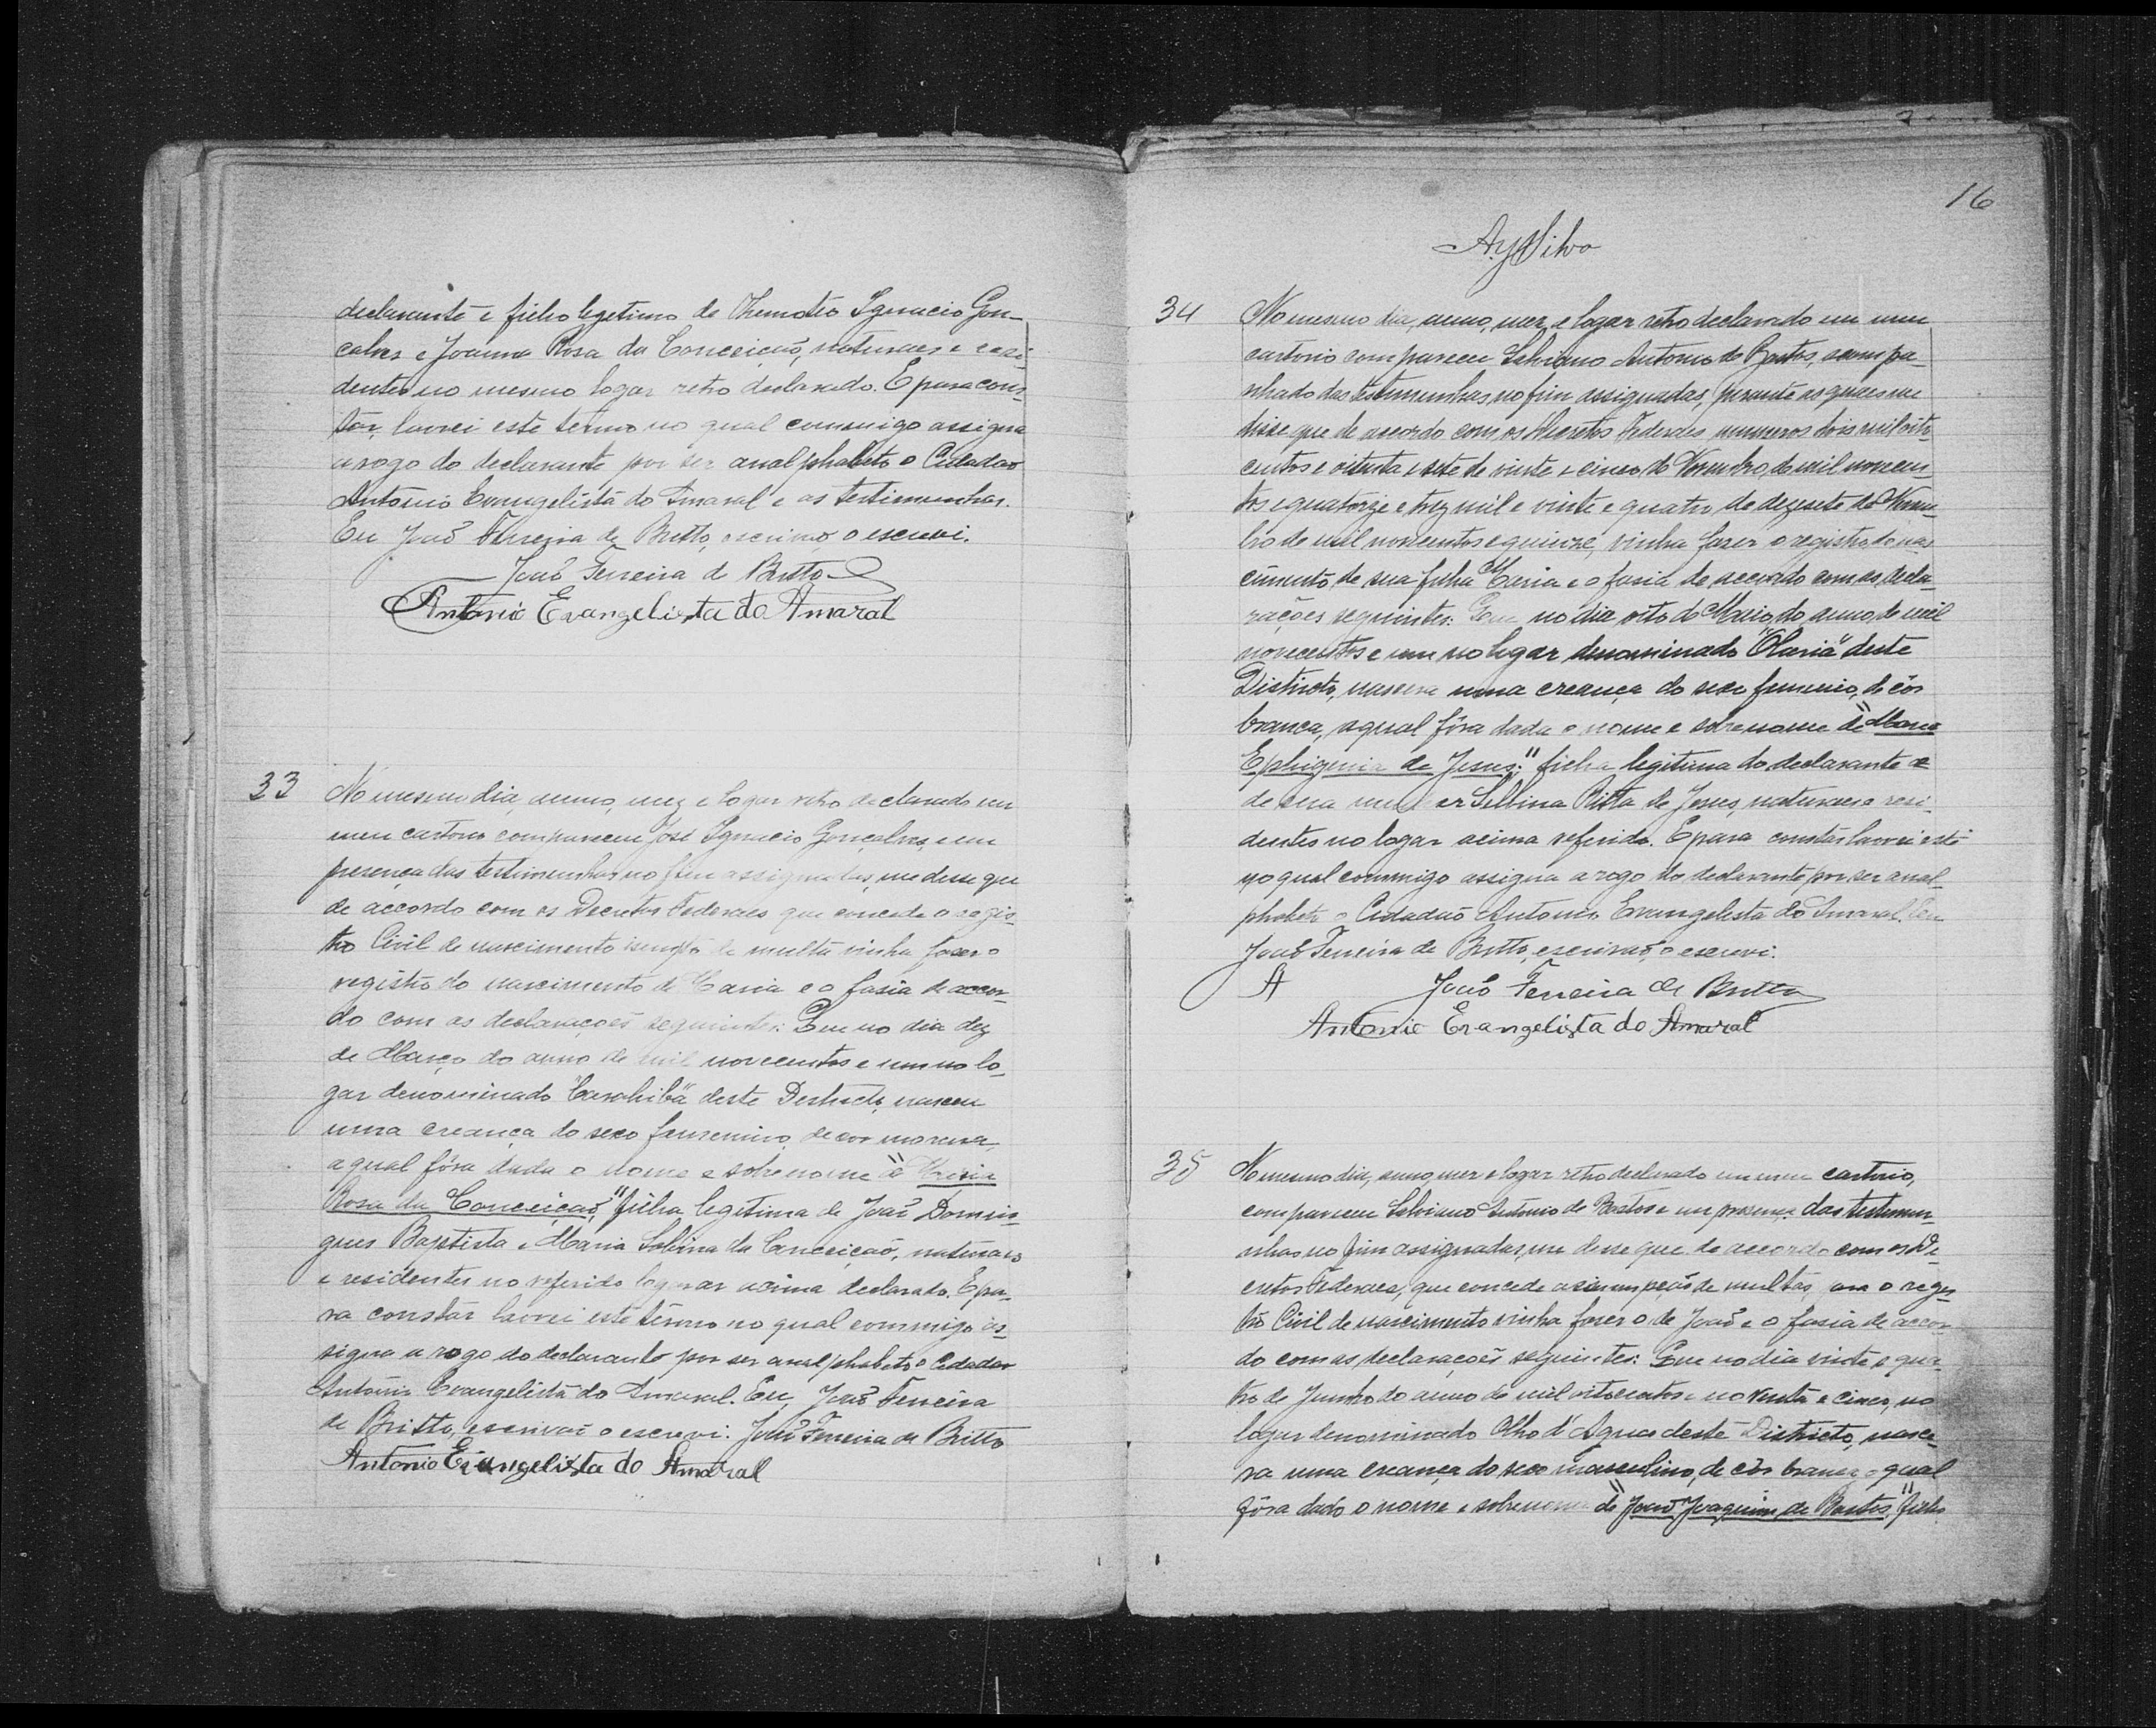 declarante e filho legetimo de Themoteo Ignacio Gon-
calves e Joanna Rosa da Conceição, naturaes e resi-
dentes no mesmo logar retro declarado. E para cons-
tar, lavrei este termo no qual commigo assigna
a rogo do declarante por ser analphabeto o Cidadao
Antonio Evangelista do Amaral e as testimunhas.
Eu João Ferreira de Britto, escrivão, o escrevi.
João Ferreira de Britto
Antonio Evangelista do Amaral
33 No mesmo dia, anno, mez e logar retro declarado em
meu cartorio compareceu José Ignacio Gonçalves, e em
presença das testimunhas no fim assignadas, me desse que
de accordo com os Decretos Federaes que concede o regis-
tro Civil de nascimento isempto de multa vinha faser o
registro do nascimento de Maria e o fasia de accor-
do com as declarações seguintes: Que no dia dez
de Março do anno de mil novecentos e um no lo-
gar denominado deste Destricto, nasceu
uma creança do sexo femenino, de cor morena,
a qual fôra dada o nome e sobrenome de "Maria
Rosa da Conceição," filha legitima de João Domin-
gues Baptista e Maria Sabina da Conceição, naturaes
e residentes no referido logarar acima declarado. E pa-
ra constar lavrei este termo no qual commigo as-
signa a rogo do declarante por ser analphabeto o Cidadao
Antonio Evangelista do Amaral. Eu, João Ferreira
de Britto, escrivão o escrevi. João Ferreira de Britto
Antonio Evangelista do Amaral
16
A. y Silva
34 No mesmo dia, anno, mez e logar retro declarado em meu
cartorio compareceu Salviano Antonio de Bastos, acompa-
nhado das testimunhas no fim assignadas, perante as quaes me
disse que de acordo com os Decretos Federaes numeros dois mil oito-
centos e oitenta e sete de vinte e cinco de Novembro, de mil novecen-
tos e quatorze e trez mil e vinte e quatro de dezesete de Novem-
bro de mil novecentos e quinze, vinha faser o registro do nas-
cimento de sua filha Maria e o fasia de accordo com as decla-
rações seguintes: Que no dia oito de Maio do anno de mil
novecentos e um no logar denominado "Olaria" deste
Districto, nascera uma creança do sexo femenino, de côr
branca, a qual fôra dada o nome e sobrenome de "Maria
Ephigenia de Jesus," filha legitima do declarante e
de sua mulher Sabina Ritta de Jesus, naturaes e resi-
dentes no logar acima referido. E para constar lavrei este
no qual commigo assigna a rogo do declarante por ser anal-
phabeto o Cidadão Antonio Evangelista do Amaral. Eu
João Ferreira de Britto, escrivão, o escrevi.
A João Ferreira de Britto
Antonio Evangelista do Amaral
35 No mesmo dia, anno, mez e logar retro declarado em meu cartorio,
compareceu Salviano Antonio de Bastos e em presença das testimun-
nhas no fim assignadas, me desse que de accordo com os De-
cretos Federaes, que concede a de multas, o regis-
tro Civil de nascimento vinha faser o de João e o fasia de accor-
do com as declarações seguintes: Que no dia vinte e qua-
tro de Junho do anno de mil oitocentos e noventa e cinco, no
logar denominado Olho d'Agua deste Districto, nasce-
ra uma creança do sexo masculino, de côr branca, o qual
fôra dado o nome e sobrenome de "João Joaquim de Bastos," filho